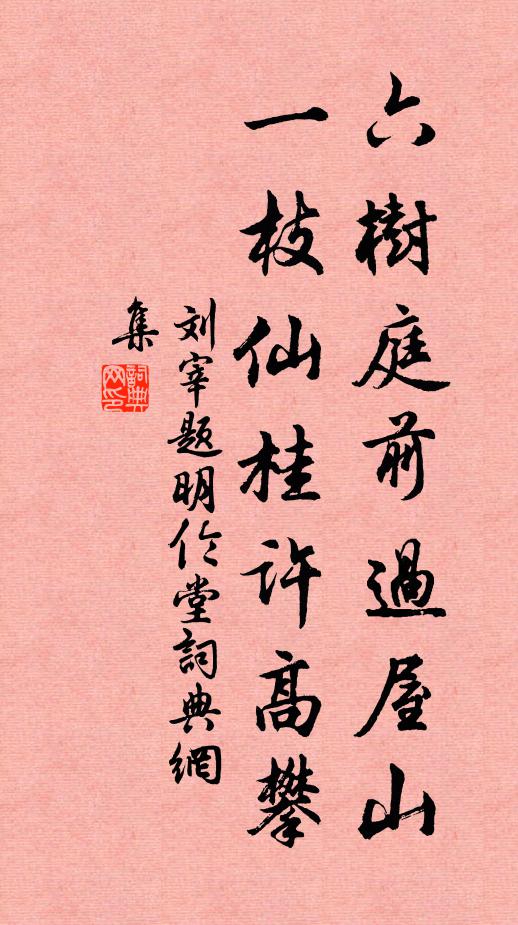 六樹庭前過屋山
一枝仙桂許高攀
刘宰题明伦堂詞典網
集
詞典
网印